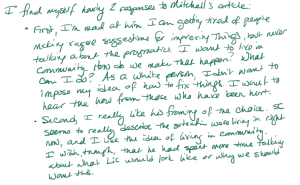 I find myself having 2 responses to Mitchell's article:
• First, I'm mad at him. I am getting tired of people
making vague suggestions for improving things, but never
talking about the pragmatics. I want to live in
Community. How do we make that happen? What
can I do? As a white person, I don't want to
impose my idea of how to fix things. I want to
hear the how from those who have been hurt.
• Second, I really like his framing of the choice. SC
seems to really describe the we're living in right
now, and I like the idea of living in community.
I wish, though, that he had spent more time talking
about what Lic would look like or why we should
want this.